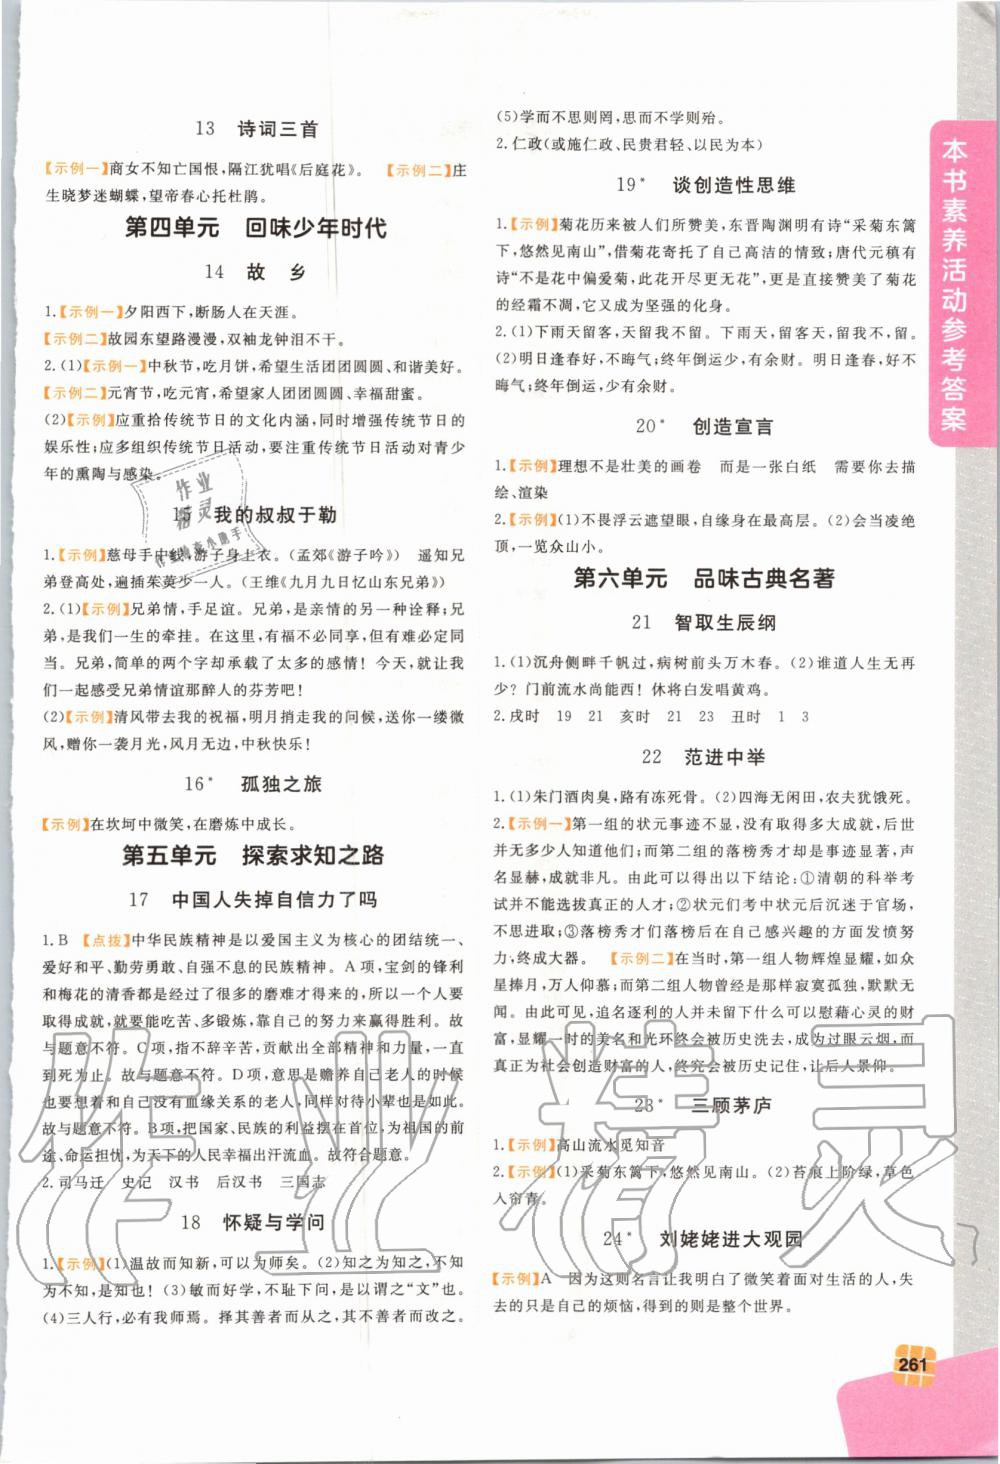 13　诗词三首
【示例一】商女不知亡国恨,隔江犹唱《后庭花》。　【示例二】庄
生晓梦迷蝴蝶,望帝春心托杜鹃。
第四单元　回味少年时代
14　故　乡
1.【示例一】夕阳西下,断肠人在天涯。
【示例二】故园东望路漫漫,双袖龙钟泪不干。
2.(1)【示例一】中秋节,吃月饼,希望生活团团圆圆、和和谐谐。
【示例二】元宵节,吃元宵,希望家人团团圆圆、幸福甜蜜。
(2)【示例】应重拾传统节日的文化内涵,同时增强传统节日的
娱乐性;应多组织传统节日活动,要注重传统节日对青少
年的熏陶与感染。
15　我的叔叔于勒
1.【示例】慈母手中线,游子身上衣。(孟郊《游子吟》)　遥知兄
弟登高处,遍插茱萸少一人。(王维《九月九日忆山东兄弟》)
2.(1)【示例】兄弟情,手足谊。兄弟,是亲情的另一种诠释;兄
弟,是我们一生的牵挂。在这里,有福不必同享,但有难一定
同当。兄弟,简单的两个字却承载了太多的感情！今天,就让我
们一起感受兄弟情谊那醉人的芬芳吧!
(2)【示例】清风带去我的祝福,明月捎走我的问候,送你一缕微
风,赠你一袭月光,风月无边,中秋快乐!
16*　孤独之旅
【示例】在坎坷中微笑,在磨炼中成长。
第五单元　探索求知之路
17　中国人失掉自信力了吗
1.B　【点拨】中华民族精神是以爱国主义为核心的团结统一、
爱好和平、勤劳勇敢、自强不息的民族精神。A项,宝剑的锋利
和梅花的清香都是以很多的磨难才得来的,同样一个人要
取得成就,就要能吃苦、多锻炼,靠自己的努力来赢得胜利。故
与题意不符。C项,指不辞辛苦,贡献出全部精神和力量,一直
到死为止。故与题意不符。D项,意思是赡养孝敬自己的老人,
和自己没有血缘关系的老人,同样对待小辈也是如此。
故与题意不符。B项,把国家、民族的利益摆在首位,为祖国的前
途、命运担忧,为天下的人民幸福出汗流血。故符合题意。
2.司马迁　史记　汉书　后汉书　三国志
18　怀疑与学问
1.【示例】(1)温故而知新,可以为师矣。(2)知之为知之,不知
为不知,是知也!(3)敏而好学,不耻下问,是以谓之“文”也!
(4)三人行,必有我师焉。择其善者而从之,其不善者而改之。
(5)学而不思则罔,思而不学则殆。
2.仁政(或施仁政、民贵君轻、以民为本)
19*　谈创造性思维
1.【示例】菊花历来被人们所赞美,东晋陶渊明有诗“采菊东篱
下,悠然见南山”,借菊花寄托了自己高洁的情致;唐代元稹有
诗“不是花中偏爱菊,此花开尽更无花”,更是直接赞美了菊花
的经霜不凋,它又成为坚强的化身。
2.(1)下雨天留客天,我不留。　下雨天,留客天,留我不,留。
(2)明日逢春好,不晦气;终年倒运少,有余财。明日逢春,好不
晦气;终年倒运,少有余财。
20*　创造宣言
1.【示例】理想不是壮美的画卷　而是一张白纸　需要你去描
绘、渲染
2.【示例】(1)不畏浮云遮望眼,自缘身在最高层。(2)会当凌绝
顶,一览众山小。
第六单元　品味古典名著
21　智取生辰纲
1.(1)沉舟侧畔千帆过,病树前头万木春。(2)谁道人生无再
少?门前流水尚能西!休将白发唱黄鸡。
2.戌时　19　21　亥时　21　23　丑时　1　3
22　范进中举
1.(1)朱门酒肉臭,路有冻死骨。(2)四海无闲田,农夫犹饿死。
2.【示例一】第一组的状元事迹不显,没有多大成就,因而后世
并无多少人知道他们;而第二组的落榜秀才却人才辈出,声
名显赫,成就非凡。由此可以得出以下结论:①清朝的科举考
试并不能选拔真正的人才;②状元们考中状元后沉迷于官场,
不思进取;③落榜秀才们在自己感兴趣的方面发愤努
力,终成大器。　【示例二】在当时,第一组人物辉煌显耀,如众
星捧月,万人仰慕;而第二组人物曾经是那样寂寞孤独,默默无
闻。由此可以看出,追名逐利的人并未留下什么可以慰藉心灵的财
富,显耀一时的美名和光环终会被历史洗去,成为过眼云烟,而
真正为社会创造财富的人,终究会被历史记住,让后人景仰。
23*　三顾茅庐
1.【示例】高山流水觅知音
2.【示例】(1)采菊东篱下,悠然见南山。(2)苔痕上阶绿,草色
入帘青。
24*　刘姥姥进大观园
【示例】A　因为这则名言让我明白了微笑着面对生活的人,失
去的只是自己的烦恼,得到的则是整个世界。
本书素养活动参考答案
261
作业精灵